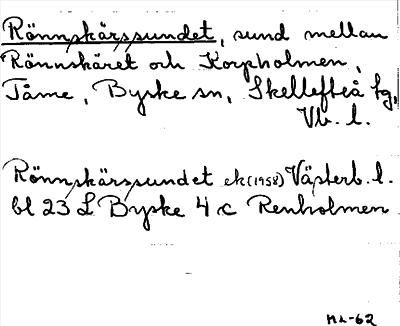 Rönnskärssundet, sund mellan
Rönnskäret och Korpholmen,
Tåme, Byske sn, Skellefteå kg,
Vb. l.
Rönnskärssundet ek (1958) Västerb. l.
bl 23 L Byske 4 c Renholmen